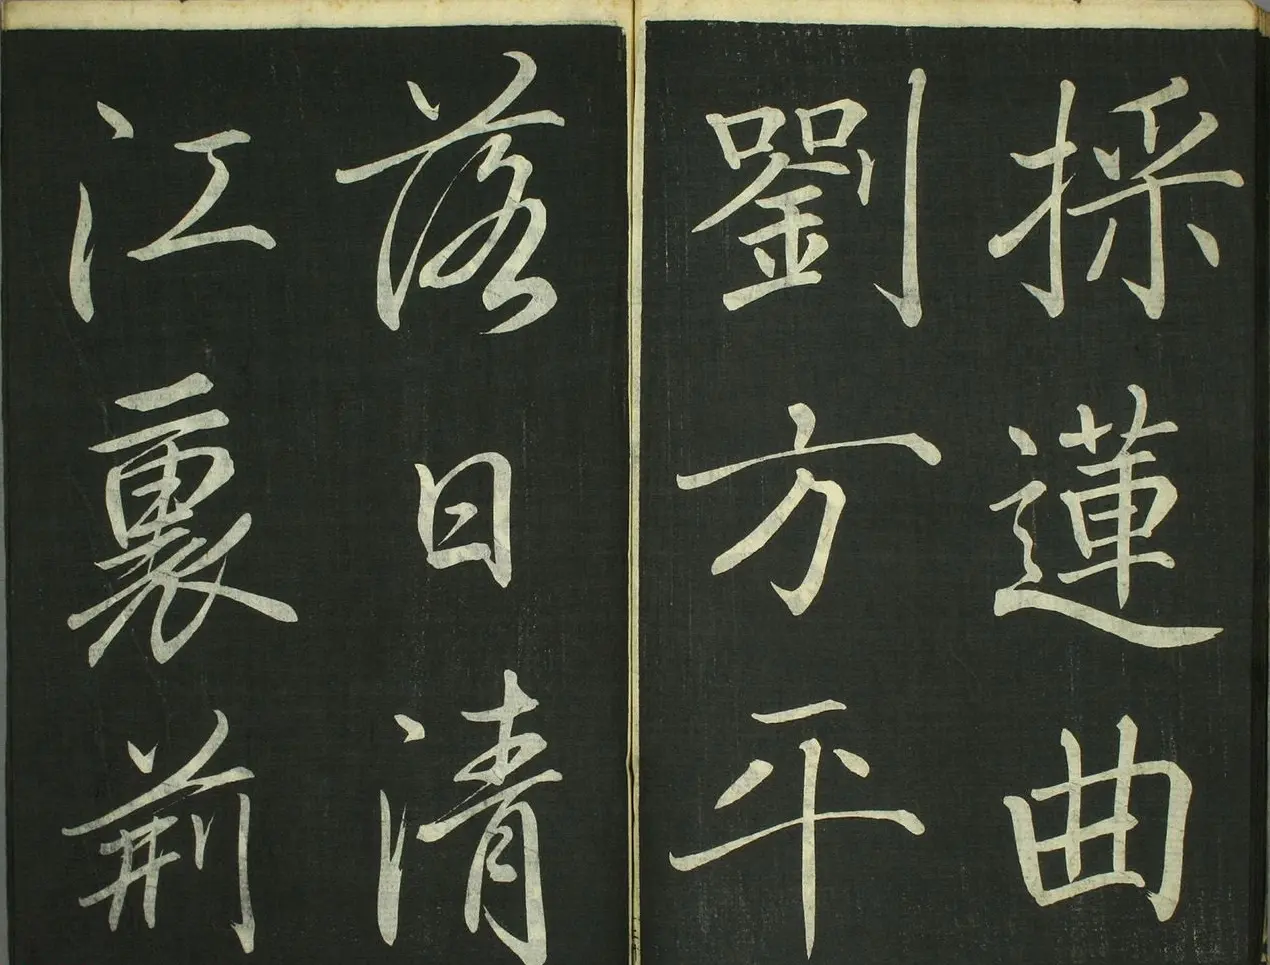 採蓮曲
劉方平
落日清
江裏荊